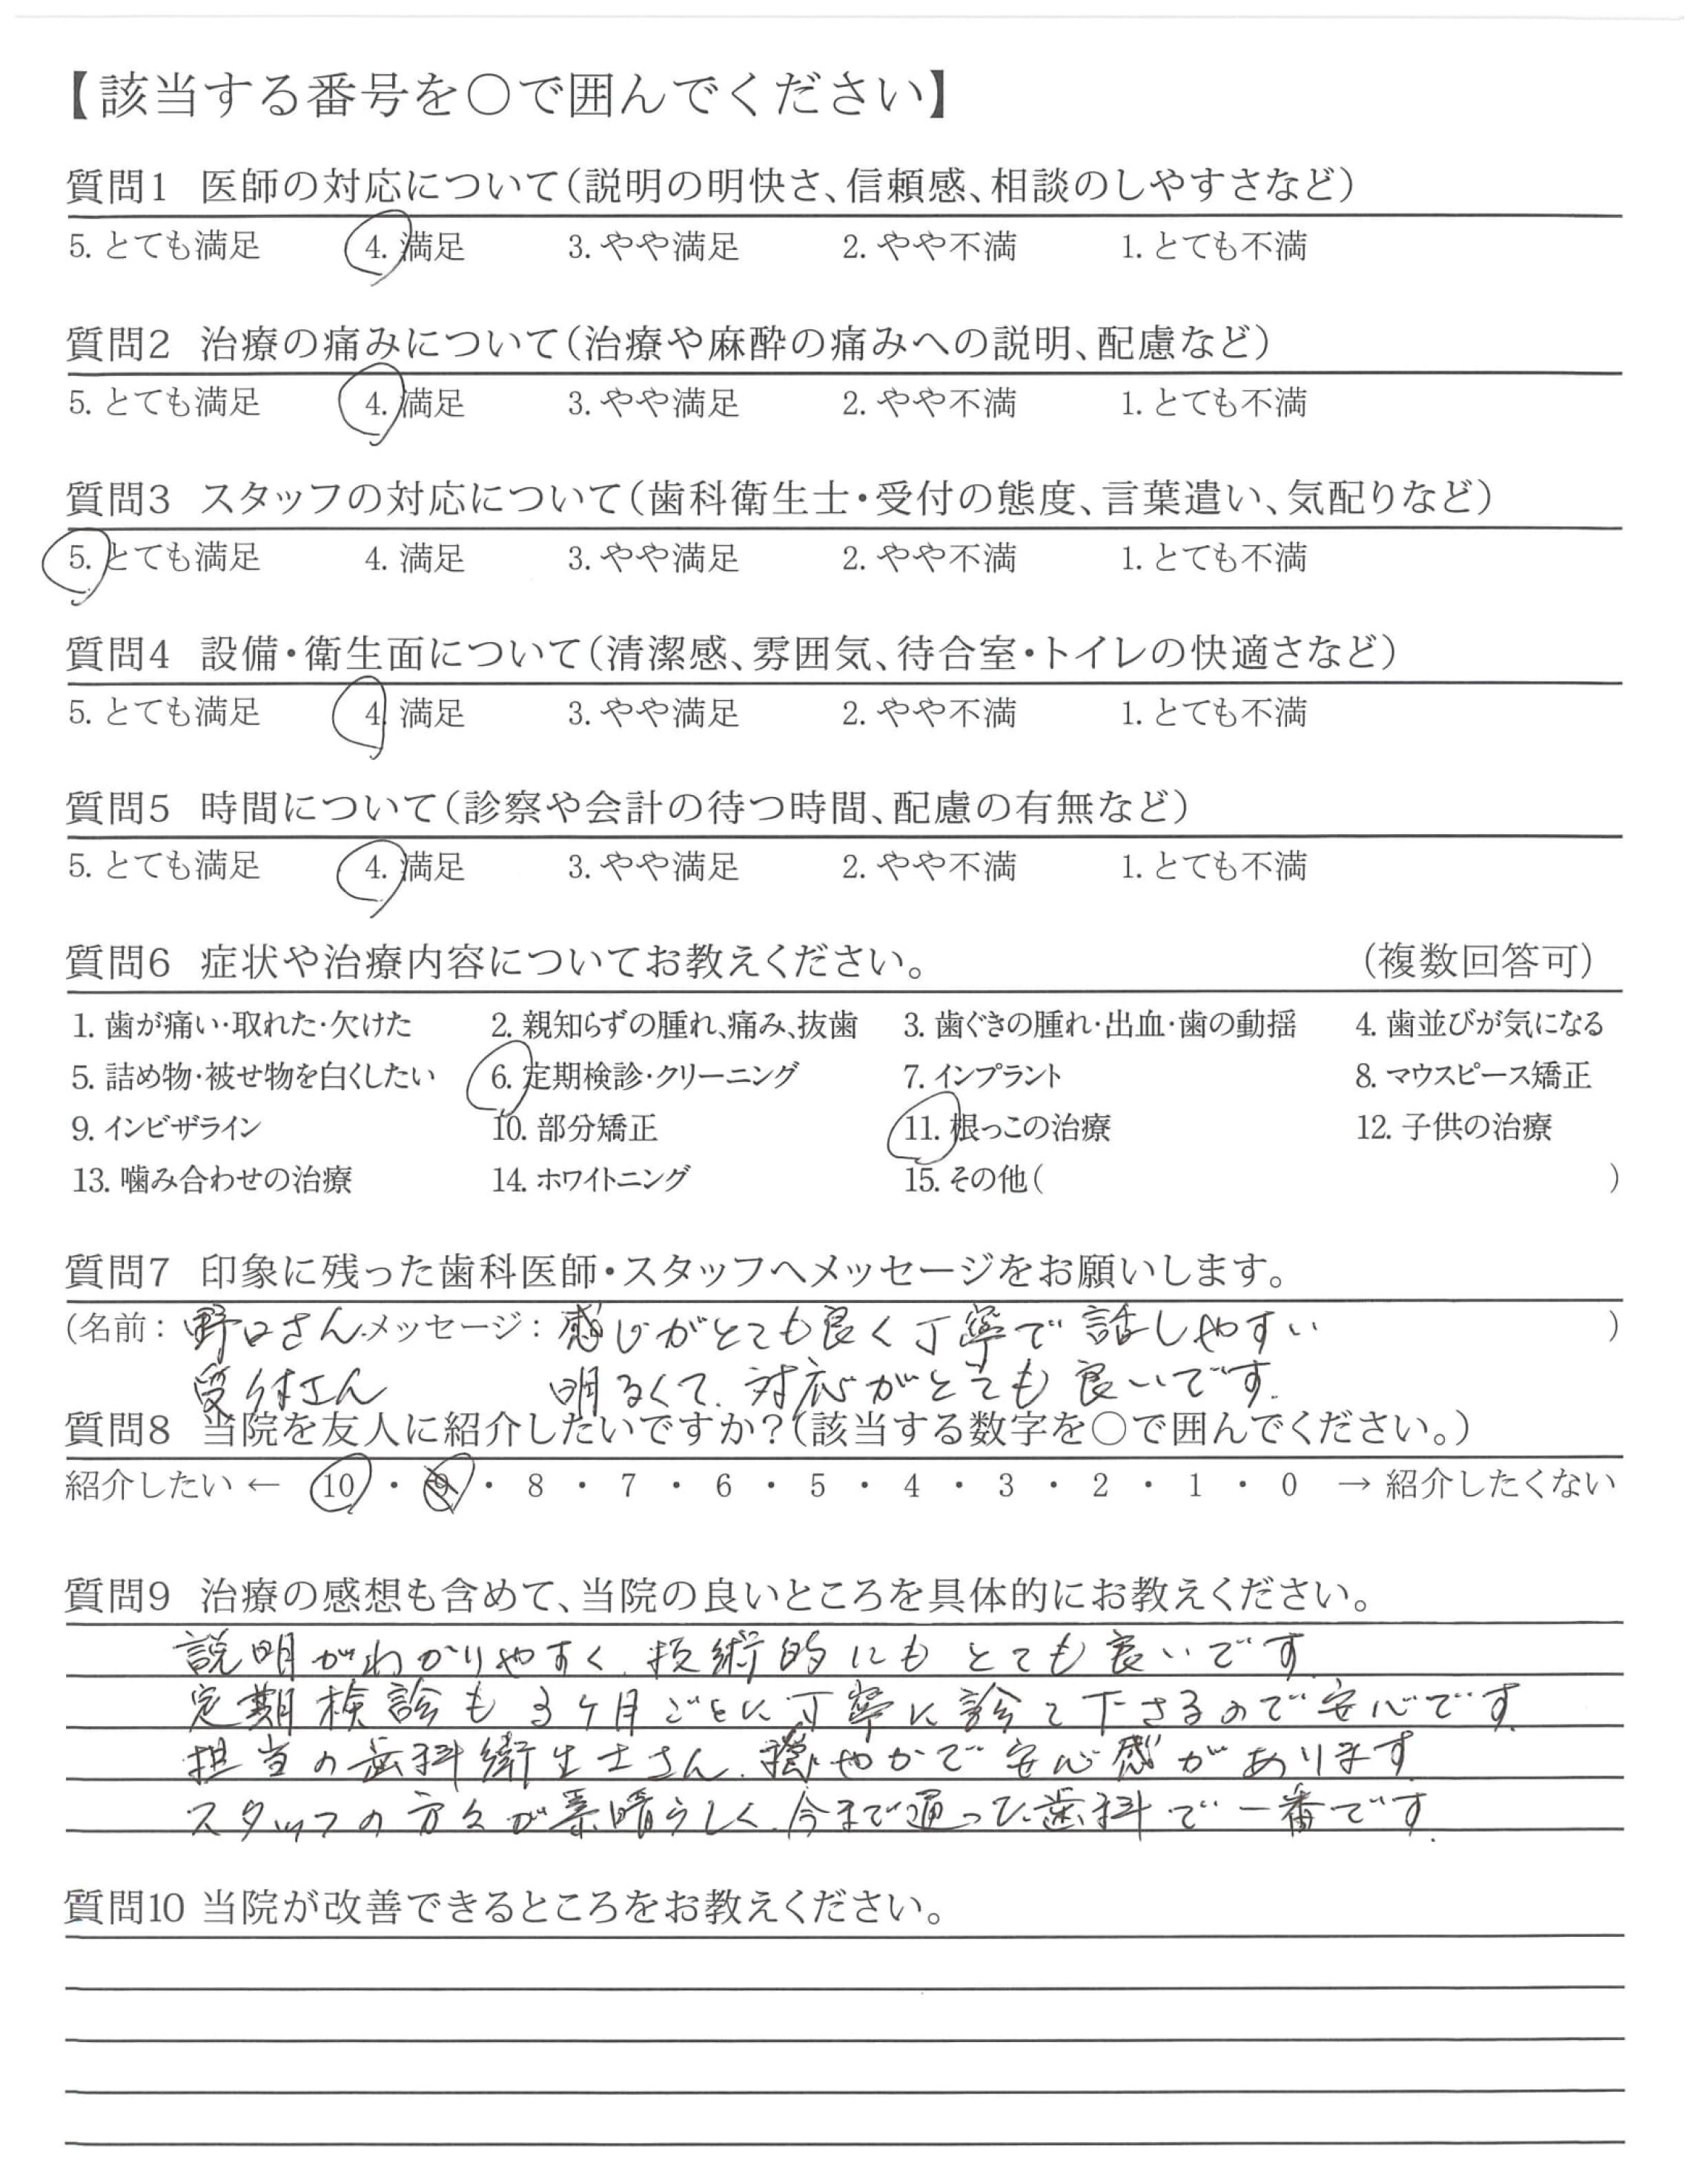 【該当する番号を○で囲んでください】
質問1 医師の対応について(説明の明快さ、信頼感、相談のしやすさなど)
5. とても満足 4. 満足 3. やや満足 2. やや不満 1. とても不満
質問2 治療の痛みについて(治療や麻酔の痛みへの説明、配慮など)
5. とても満足 4. 満足 3. やや満足 2. やや不満 1. とても不満
質問3 スタッフの対応について(歯科衛生士・受付の態度、言葉遣い、気配りなど)
5. とても満足 4. 満足 3. やや満足 2. やや不満 1. とても不満
質問4 設備・衛生面について(清潔感、雰囲気、待合室・トイレの快適さなど)
5. とても満足 4. 満足 3. やや満足 2. やや不満 1. とても不満
質問5 時間について(診察や会計の待つ時間、配慮の有無など)
5. とても満足 4. 満足 3. やや満足 2. やや不満 1. とても不満
質問6 症状や治療内容についてお教えください。 (複数回答可)
1. 歯が痛い・取れた・欠けた 2. 親知らずの腫れ、痛み、抜歯 3. 歯ぐきの腫れ・出血・歯の動揺 4. 歯並びが気になる
5. 詰め物・被せ物を白くしたい 6. 定期検診・クリーニング 7. インプラント 8. マウスピース矯正
9. インビザライン 10. 部分矯正 11. 根っこの治療 12. 子供の治療
13. 噛み合わせの治療 14. ホワイトニング 15. その他( )
質問7 印象に残った歯科医師・スタッフへメッセージをお願いします。
(名前: 野口さん メッセージ: 感じがとても良く丁寧で話しやすい )
受付さん 明るくて、対応がとても良いです。
質問8 当院を友人に紹介したいですか?(該当する数字を○で囲んでください。)
紹介したい ← 10 ・ 9 ・ 8 ・ 7 ・ 6 ・ 5 ・ 4 ・ 3 ・ 2 ・ 1 ・ 0 → 紹介したくない
質問9 治療の感想も含めて、当院の良いところを具体的にお教えください。
説明がわかりやすく、技術的にもとても良いです。
定期検診も3ヶ月ごとに丁寧に診て下さるので安心です。
担当の歯科衛生士さん、穏やかで安心感があります。
スタッフの方々が素晴らしく、今まで通った歯科で一番です。
質問10 当院が改善できるところをお教えください。